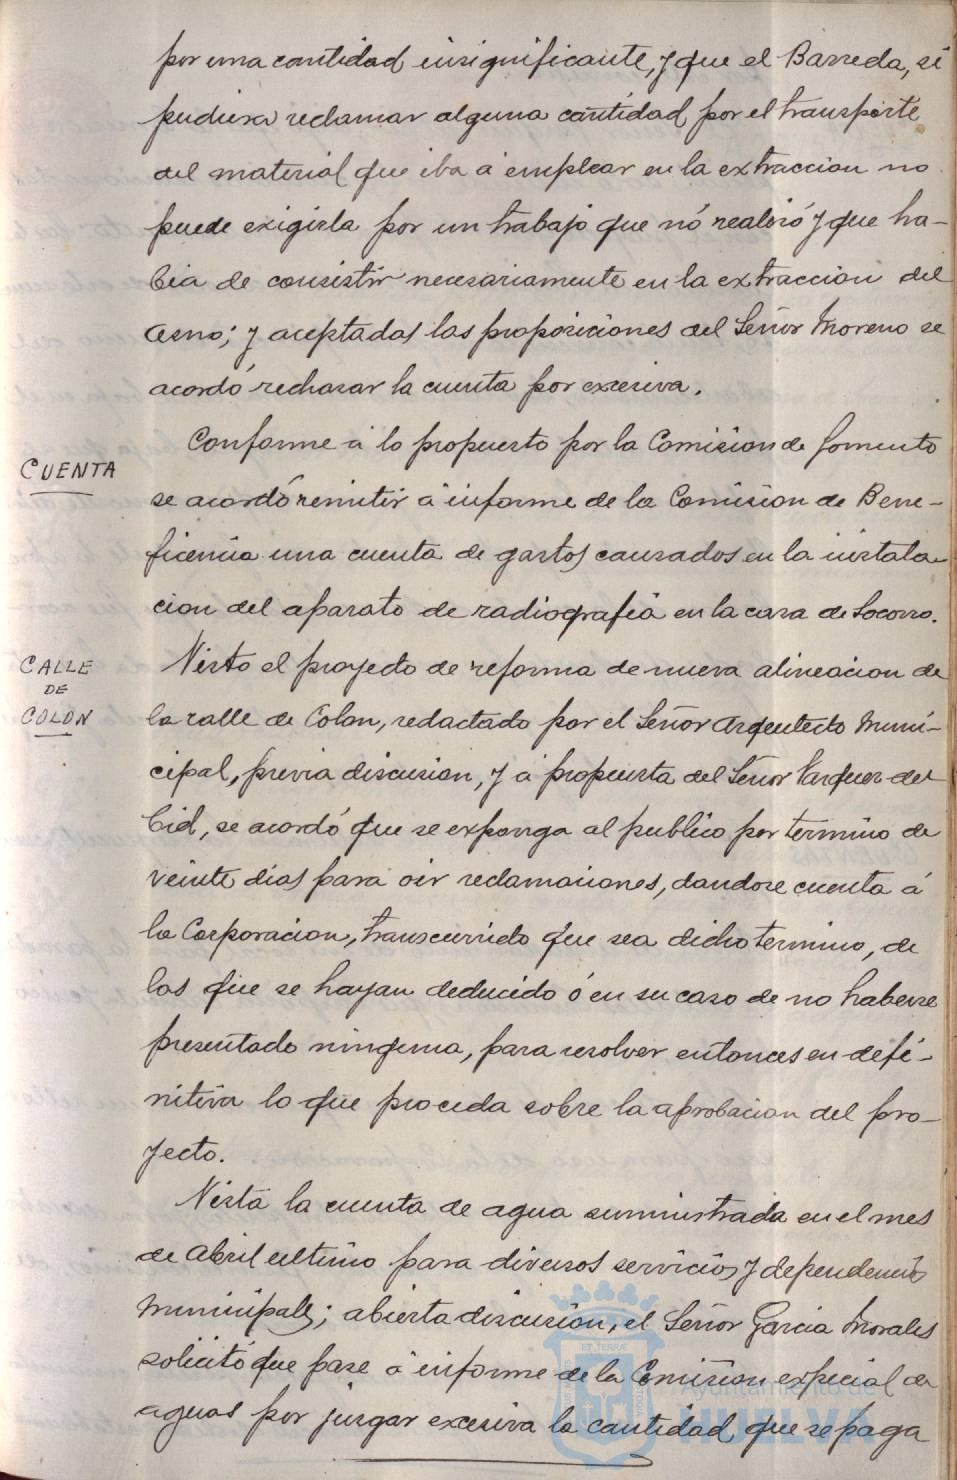 por una cantidad insignificante, y que el Barreda, si
pudiera reclamar alguna cantidad por el transporte
del material que iba á emplear en la extraccion no
puede exigirla por un trabajo que nó realizó y que ha-
bia de consistir necesariamente en la extraccion del
asno; y aceptadas las proposiciones del Señor Moreno se
acordó rechazar la cuenta por excesiva.
Conforme á lo propuesto por la Comision de fomento
CUENTA
se acordó remitir á informe de la Comision de Bene-
ficencia una cuenta de gastos causados en la instala-
cion del aparato de radiografia en la casa de Socorro.
CALLE
DE
COLON
Visto el proyecto de reforma de nueva alineacion de
la calle de Colon, redactado por el Señor Arquitecto Muni-
cipal, previa discusion, y á propuesta del Señor Vazquez del
Cid, se acordó que se exponga al publico por termino de
veinte dias para oir reclamaciones, dandose cuenta á
la Corporacion, transcurrido que sea dicho termino, de
las que se hayan deducido ó en su caso de no haberse
presentado ninguna, para resolver entonces en defi-
nitiva lo que proceda sobre la aprobacion del pro-
yecto.
Vista la cuenta de agua suministrada en el mes
de Abril ultimo para diversos servicios y dependencias
Municipales; abierta discusión, el Señor Garcia Morales
solicitó que pase á informe de la Comision especial de
aguas por juzgar excesiva la cantidad que se paga
Ayuntamiento de
HUELVA